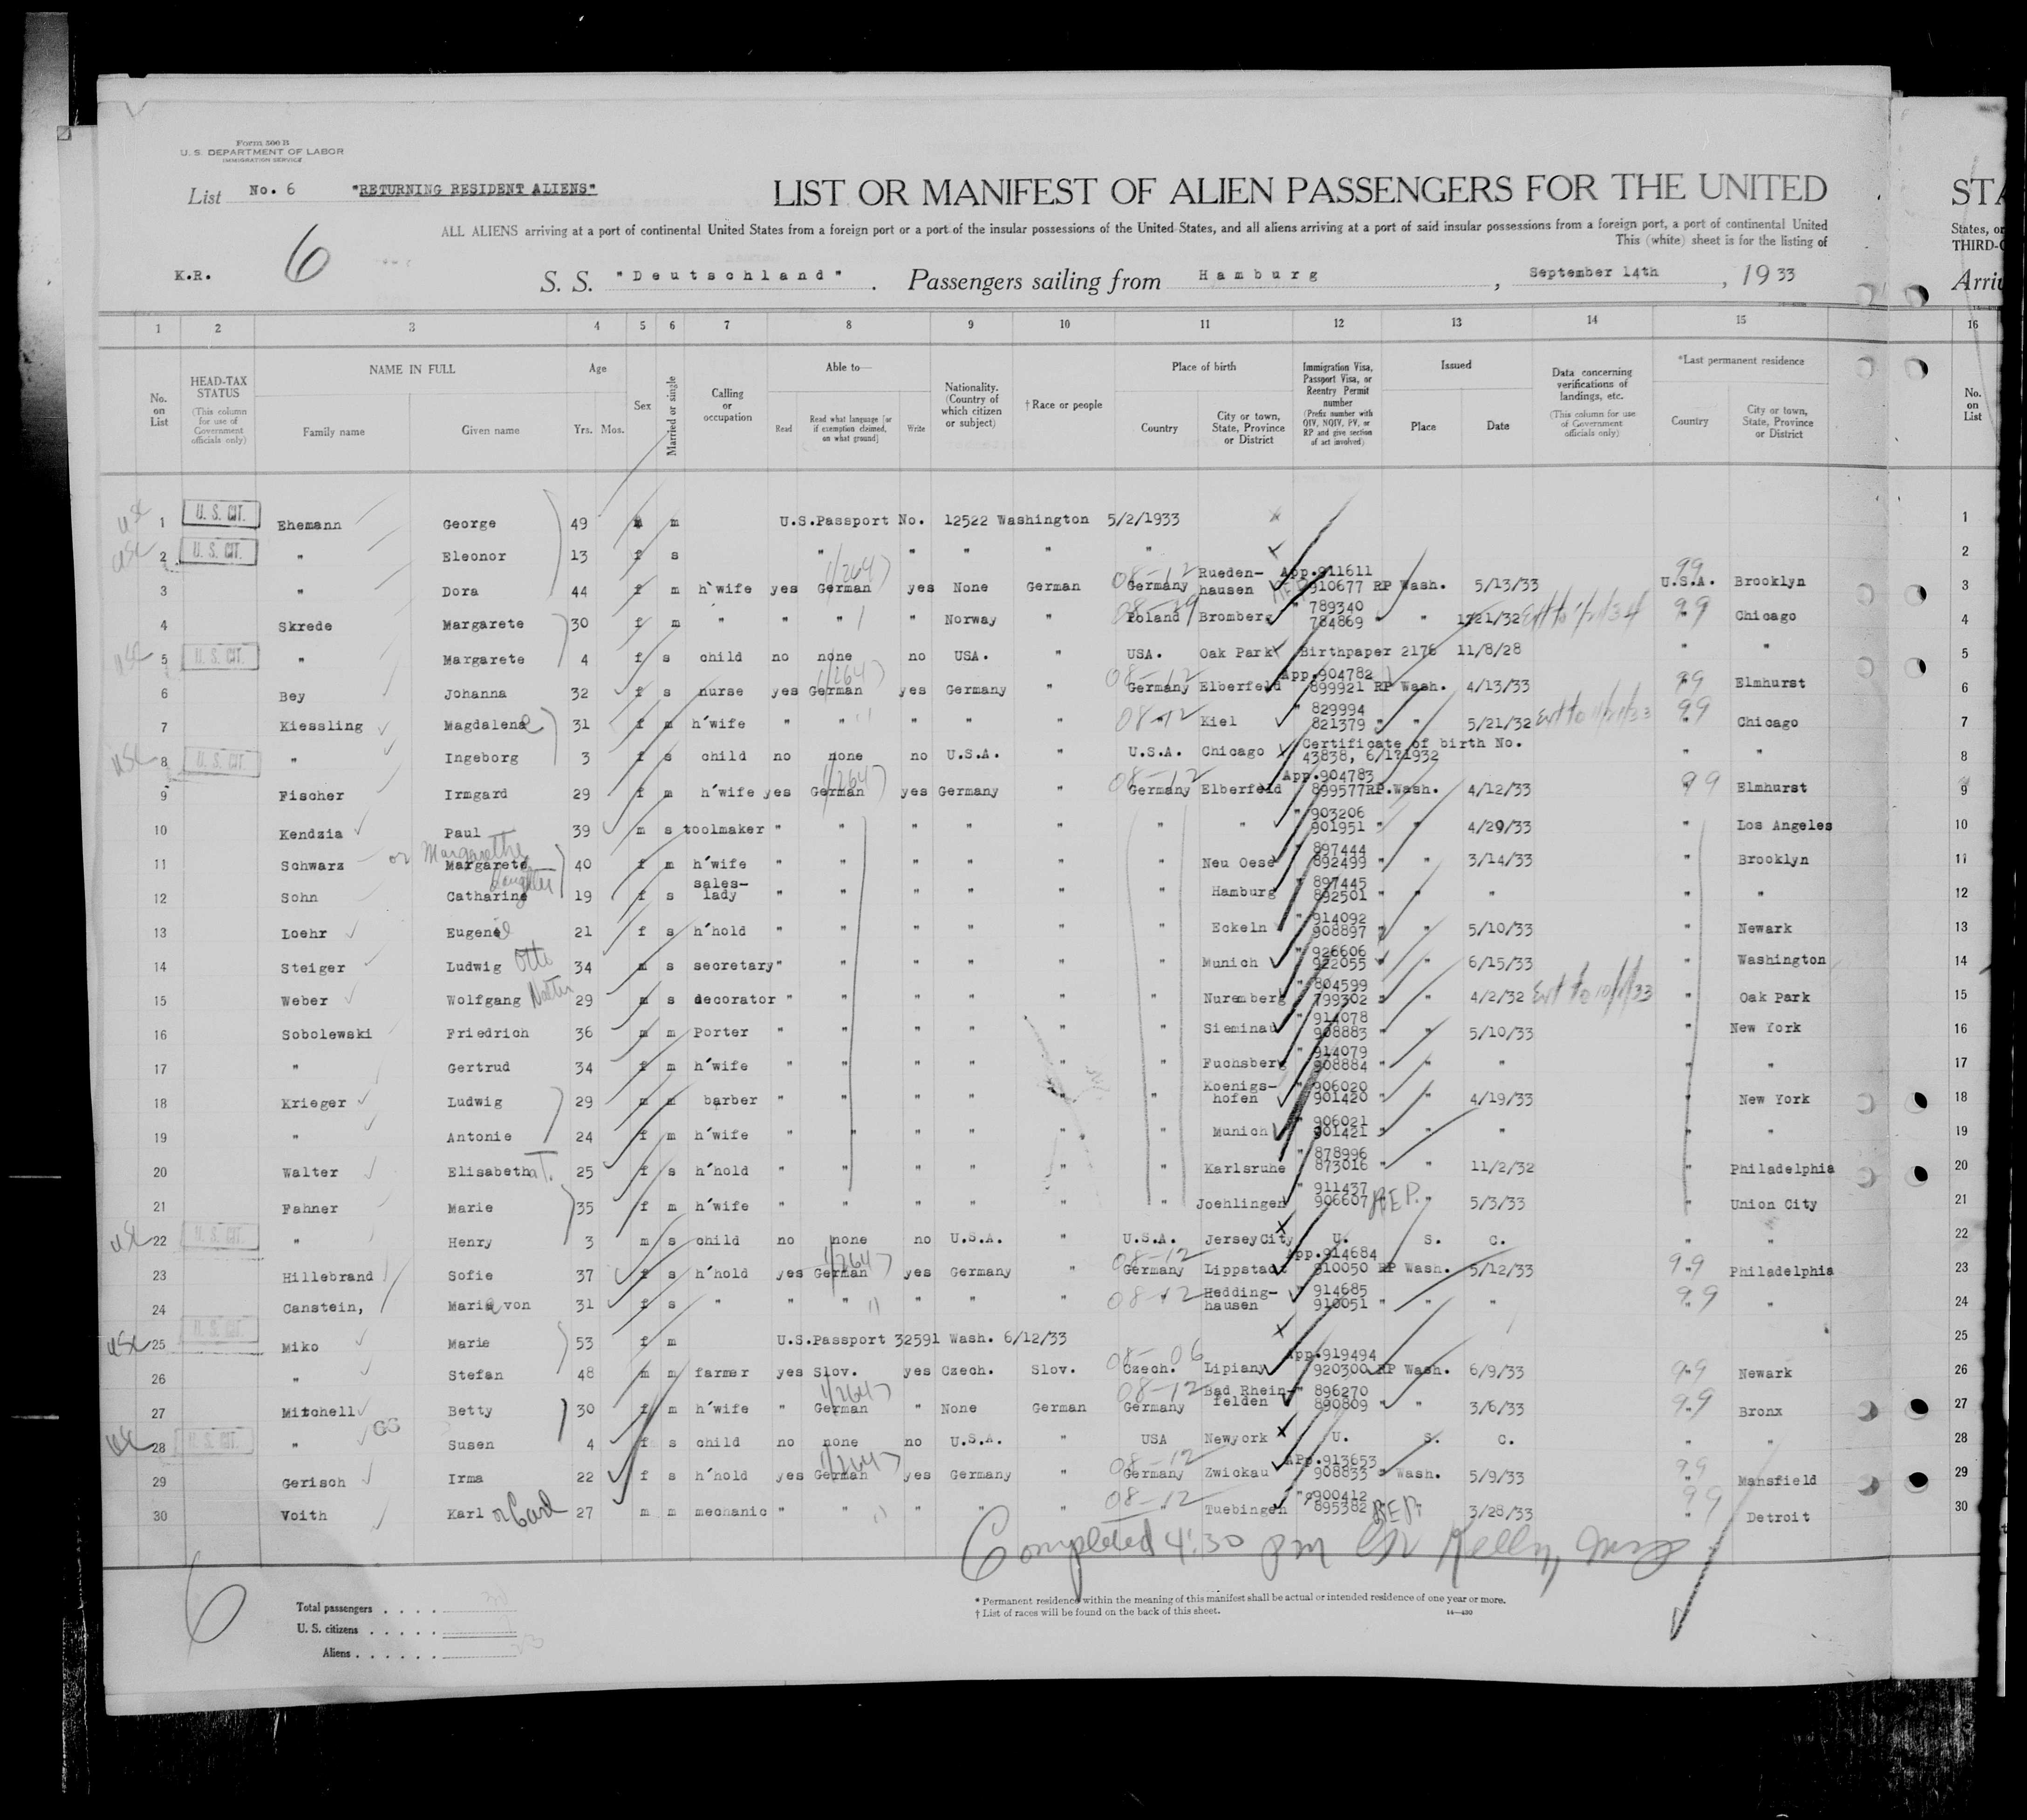 Form 500 B
U. S. DEPARTMENT OF LABOR
IMMIGRATION SERVICE
List No. 6 "RETURNING RESIDENT ALIENS"
LIST OR MANIFEST OF ALIEN PASSENGERS FOR THE UNITED
STA
ALL ALIENS arriving at a port of continental United States from a foreign port or a port of the insular possessions of the United States, and all aliens arriving at a port of said insular possessions from a foreign port, a port of continental United
States, or
This (white) sheet is for the listing of
THIRD-C
K.R. 6 S. S. "Deutschland". Passengers sailing from Hamburg, September 14th, 1933
Arriv
1 2 3 4 5 6 7 8 9 10 11 12 13 14 15 16
No. on List
HEAD-TAX STATUS (This column for use of Government officials only)
NAME IN FULL Family name Given name
Age Yrs. Mos.
Sex
Married or single
Calling or occupation
Able to— Read Read what language [or if exemption claimed, on what ground] Write
Nationality. (Country of which citizen or subject)
† Race or people
Place of birth Country City or town, State, Province or District
Immigration Visa, Passport Visa, or Reentry Permit number (Prefix number with QIV, NQIV, PV, or RP and give section of act involved)
Issued Place Date
Data concerning verifications of landings, etc. (This column for use of Government officials only)
*Last permanent residence Country City or town, State, Province or District
No. on List
USC 1 U. S. CIT. Ehemann George 49 m m U.S.Passport No. 12522 Washington 5/2/1933 1
USC 2 U. S. CIT. " Eleonor 13 f s " " " " " 2
3 " Dora 44 f m h'wife yes German 1/264 yes None German 08-12 Germany Rueden-hausen App.911611 910677 RP Wash. 5/13/33 99 U.S.A. Brooklyn 3
4 Skrede Margarete 30 f m " " " " Norway " 08-19 Poland Bromberg " 789340 784869 " " 1221/32 99 Chicago 4
USC 5 U. S. CIT. " Margarete 4 f s child no none no USA. " USA. Oak Park Birthpaper 2176 11/8/28 " " 5
6 Bey Johanna 32 f s nurse yes German 1/264 yes Germany " 08-12 Germany Elberfeld App.904782 899921 RP Wash. 4/13/33 99 Elmhurst 6
7 Kiessling Magdalena e 31 f m h'wife " " " " " 08-12 " Kiel " 829994 821379 " " 5/21/32 Ext to 11/21/33 99 Chicago 7
USC 8 U. S. CIT. " Ingeborg 3 f s child no none no U.S.A. " U.S.A. Chicago Certificate of birth No. 43838, 6/171932 " " 8
9 Fischer Irmgard 29 f m h'wife yes German 1/264 yes Germany " 08-12 Germany Elberfeld App.904783 899577RP.Wash. 4/12/33 99 Elmhurst 9
10 Kendzia Paul 39 m s toolmaker " " " " " " " " 903206 901951 " " 4/29/33 " Los Angeles 10
11 Schwarz or Margarethe Margarete 40 f m h'wife " " " " " " Neu Oese " 897444 892499 " " 3/14/33 " Brooklyn 11
12 Sohn Catharine daughter 19 f s sales-lady " " " " " " Hamburg " 897445 892501 " " " " " 12
13 Loehr Eugenie 21 f s h'hold " " " " " " Eckeln " 914092 908897 " " 5/10/33 " Newark 13
14 Steiger Ludwig Otto 34 m s secretary " " " " " " Munich " 926606 922055 " " 6/15/33 " Washington 14
15 Weber Wolfgang 29 m s decorator " " " " " " Nuremberg " 804599 799302 " " 4/2/32 Ext to 10/1/33 " Oak Park 15
16 Sobolewski Friedrich 36 m m Porter " " " " " " Sieminau " 914078 908883 " " 5/10/33 " New York 16
17 " Gertrud 34 f m h'wife " " " " " " Fuchsberg " 914079 908884 " " " " " 17
18 Krieger Ludwig 29 m m barber " " " " " " Koenigs-hofen " 906020 901420 " " 4/19/33 " New York 18
19 " Antonie 24 f m h'wife " " " " " " Munich " 906021 901421 " " " " " 19
20 Walter Elisabetha T. 25 f s h'hold " " " " " " Karlsruhe " 878996 873016 " " 11/2/32 " Philadelphia 20
21 Fahner Marie 35 f m h'wife " " " " " " Joehlingen " 911437 906607 REP. " 5/3/33 " Union City 21
USC 22 U. S. CIT. " Henry 3 m s child no none no U.S.A. " U.S.A. JerseyCity U. S. C. " " 22
23 Hillebrand Sofie 37 f s h'hold yes German 1/264 yes Germany " 08-12 Germany Lippstadt App.914684 910050 RP Wash. 5/12/33 99 Philadelphia 23
24 Canstein, Maria von 31 f s " " " " " " 08-12 Hedding-hausen " 914685 910051 " " " 99 " 24
USC 25 U. S. CIT. Miko Marie 53 f m U.S.Passport 32591 Wash. 6/12/33 25
26 " Stefan 48 m m farmer yes Slov. yes Czech. Slov. 08-06 Czech. Lipiany App.919494 920300 RP Wash. 6/9/33 99 Newark 26
27 Mitchell Betty 30 f m h'wife " German 1/264 " None German 08-12 Germany Bad Rhein-felden " 896270 890809 " " 3/6/33 99 Bronx 27
USC 28 U. S. CIT. " Susen 4 f s child no none no U.S.A. " USA Newyork U. S. C. " " 28
29 Gerisch Irma 22 f s h'hold yes German 1/264 yes Germany " 08-12 Germany Zwickau APP.913653 908833 " Wash. 5/9/33 99 " Mansfield 29
30 Voith Karl or Carl 27 m m mechanic " " " " " 08-12 Tuebingen " 900412 895382 REP. " 3/28/33 99 " Detroit 30
Completed 4:30 pm Kelly,
6
Total passengers . . . .
U. S. citizens . . . . .
Aliens . . . . . .
* Permanent residence within the meaning of this manifest shall be actual or intended residence of one year or more.
† List of races will be found on the back of this sheet.
14—430